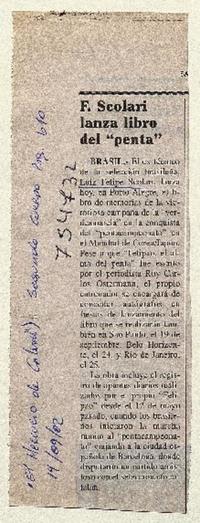 F. Scolari
lanza libro
del "penta"
BRASIL.- El ex técnico
de la selección brasileña,
Luiz Felipe Scolari, lanza hoy,
en Porto Alegre, el li-
bro de memorias de la vic-
toriosa campaña de la "ver-
deamarela" en la conquista
del "pentacampeonato" en
el Mundial de Corea/Japón.
Pese a que "Felipao, el al-
ma del penta" fue escrito
por el periodista Ruy Carlos
Ostermann, el propio
entrenador se encargará de
conceder autógrafos en
fiestas de lanzamiento del
libro que se realizarán tam-
bién en Sao Paulo, el 19 de
septiembre, Belo Horizon-
te, el 24, y Río de Janeiro,
el 25.
La obra incluye el regis-
tro de apuntes diarios realiza-
dos por el propio "Feli-
pao" desde el 12 de mayo
pasado, cuando los brasile-
ños iniciaron la marcha
rumbo al "pentacampeona-
to" viajando a la ciudad es-
pañola de Barcelona, donde
disputaron un partido amis-
toso con el seleccionado ca-
talán.
754732
"El Mercurio de Calama") Segundo Cuerpo Pág. b10
14/09/02